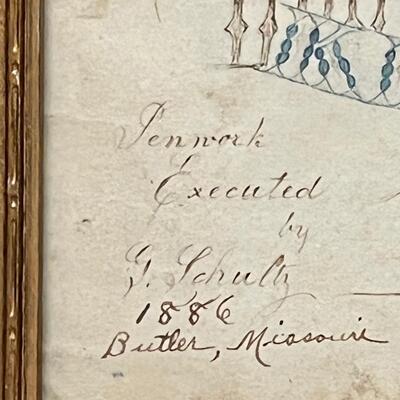 Penwork
Executed
by
G. Schultz
1886
Butler, Missouri